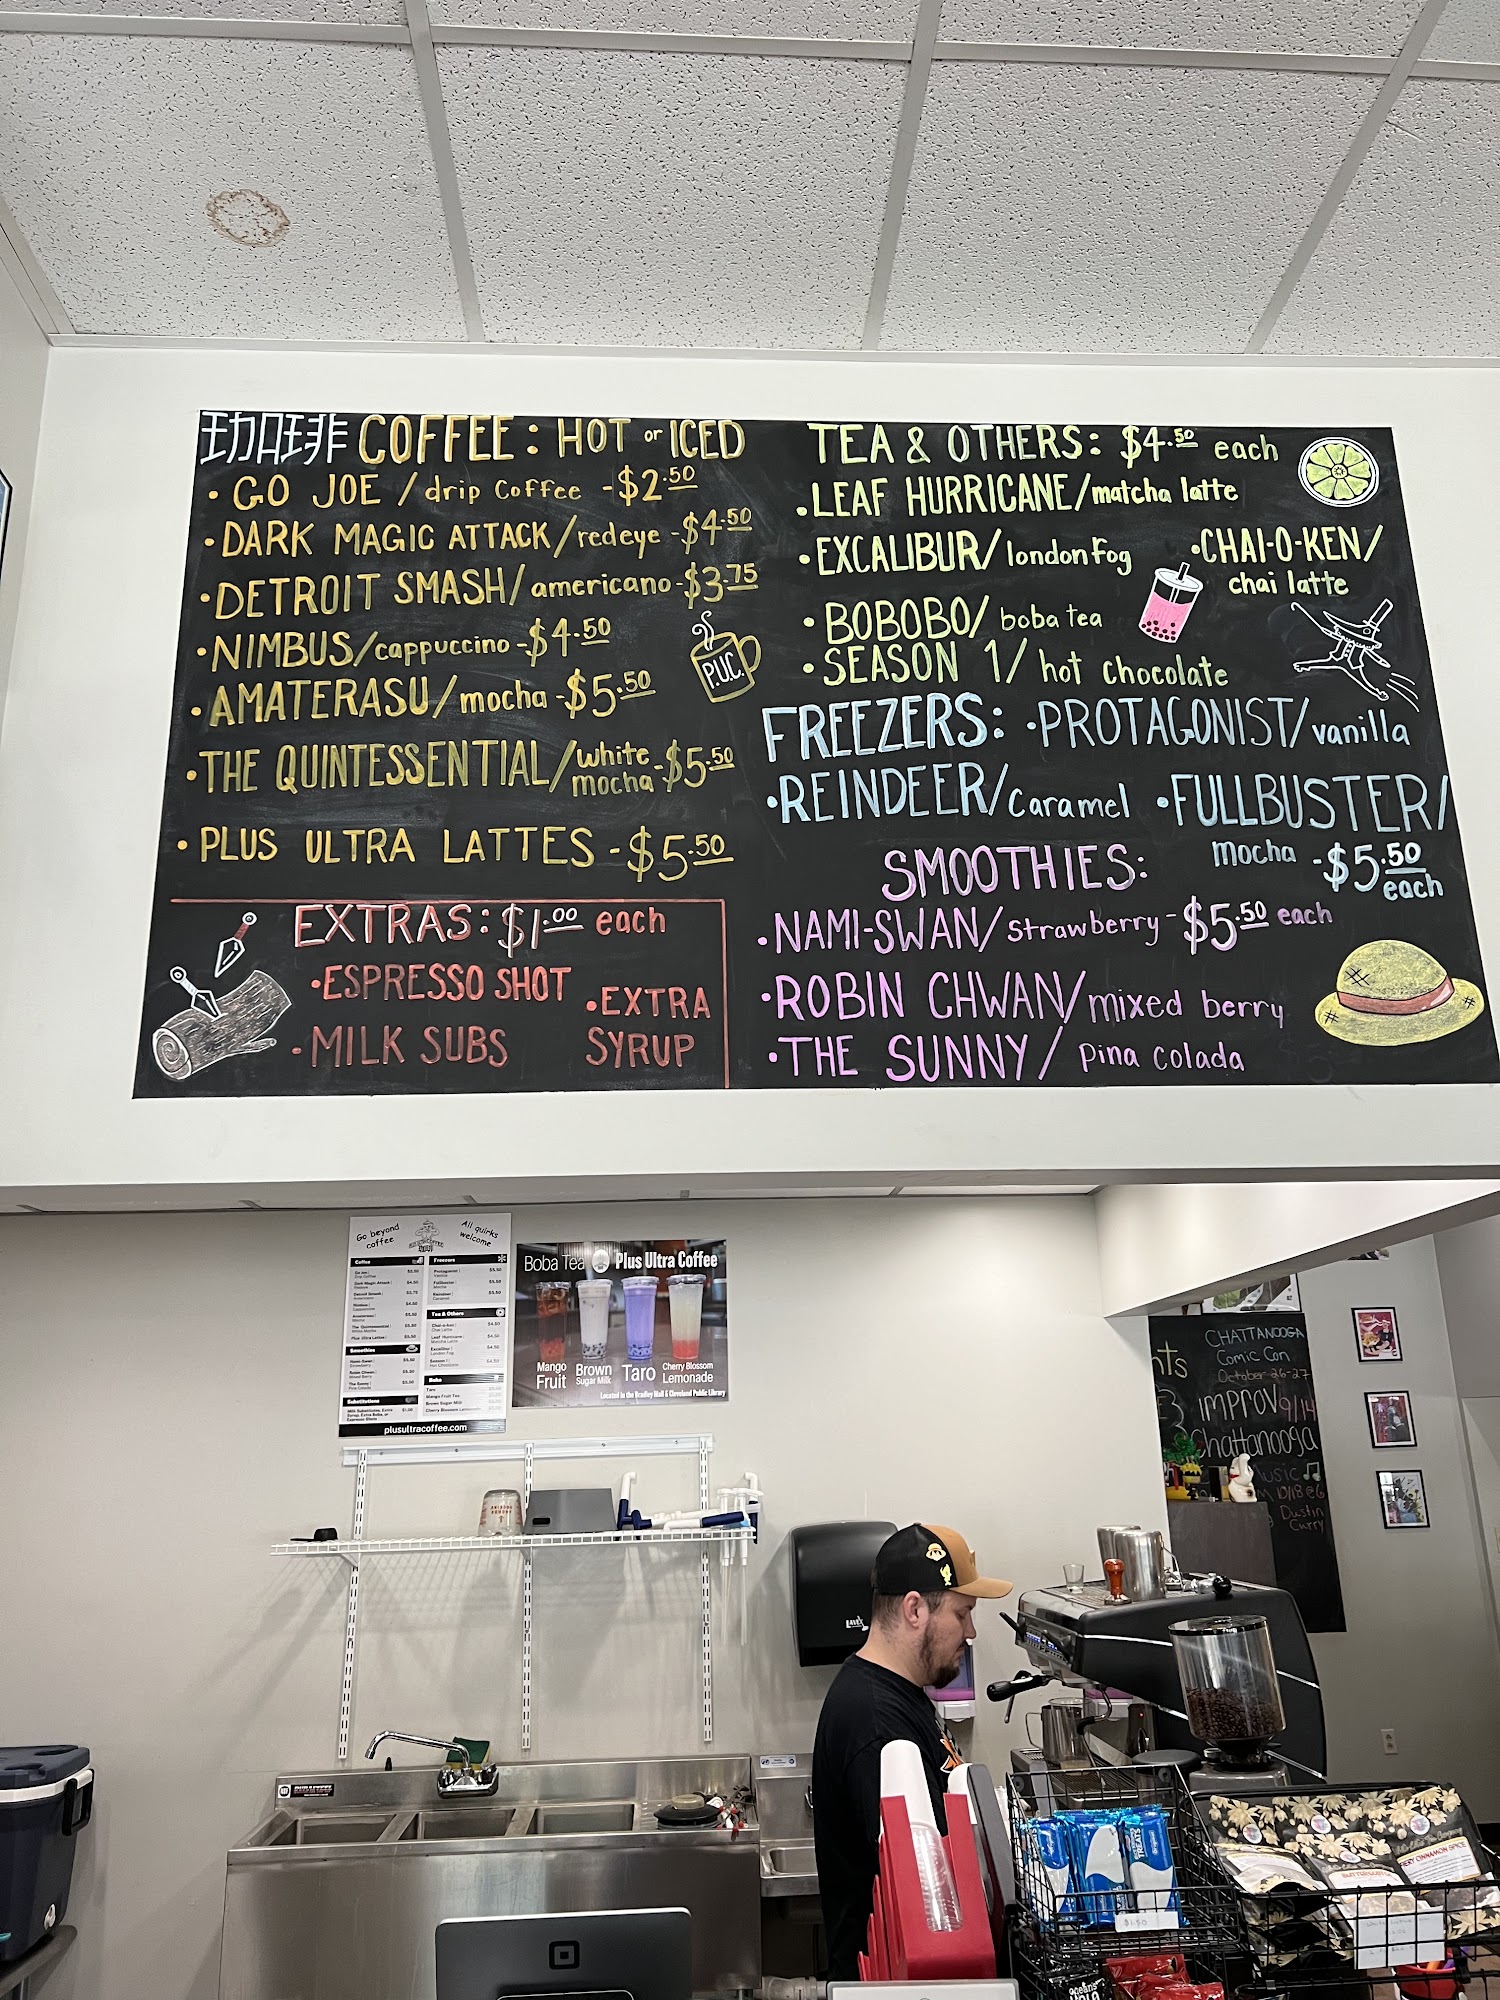 珈琲 COFFEE: HOT or ICED
• GO JOE / drip coffee - $2.50
• DARK MAGIC ATTACK / redeye - $4.50
• DETROIT SMASH / americano - $3.75
• NIMBUS / cappuccino - $4.50
• AMATERASU / mocha - $5.50
• THE QUINTESSENTIAL / white mocha - $5.50
• PLUS ULTRA LATTES - $5.50
P.U.C.
EXTRAS: $1.00 each
• ESPRESSO SHOT
• MILK SUBS
• EXTRA
SYRUP
TEA & OTHERS: $4.50 each
• LEAF HURRICANE / matcha latte
• EXCALIBUR / london fog
• CHAI-O-KEN /
chai latte
• BOBOBO / boba tea
• SEASON 1 / hot chocolate
FREEZERS: • PROTAGONIST / vanilla
• REINDEER / caramel • FULLBUSTER /
mocha - $5.50
each
SMOOTHIES:
• NAMI-SWAN / strawberry - $5.50 each
• ROBIN CHWAN / mixed berry
• THE SUNNY / pina colada
Go beyond
coffee
All quirks
welcome
Coffee
Freezers
Tea & Others
Smoothies
Boba
Substitutions
plusultracoffee.com
Boba Tea Plus Ultra Coffee
Mango
Fruit
Brown
Sugar Milk
Taro
Cherry Blossom
Lemonade
Located in the Bradley Mall & Cleveland Public Library
CHATTANOOGA
Comic Con
October 26-27
IMPROV 9/14
Chattanooga
10/18 @ 6
Dustin
Curry
$1.50